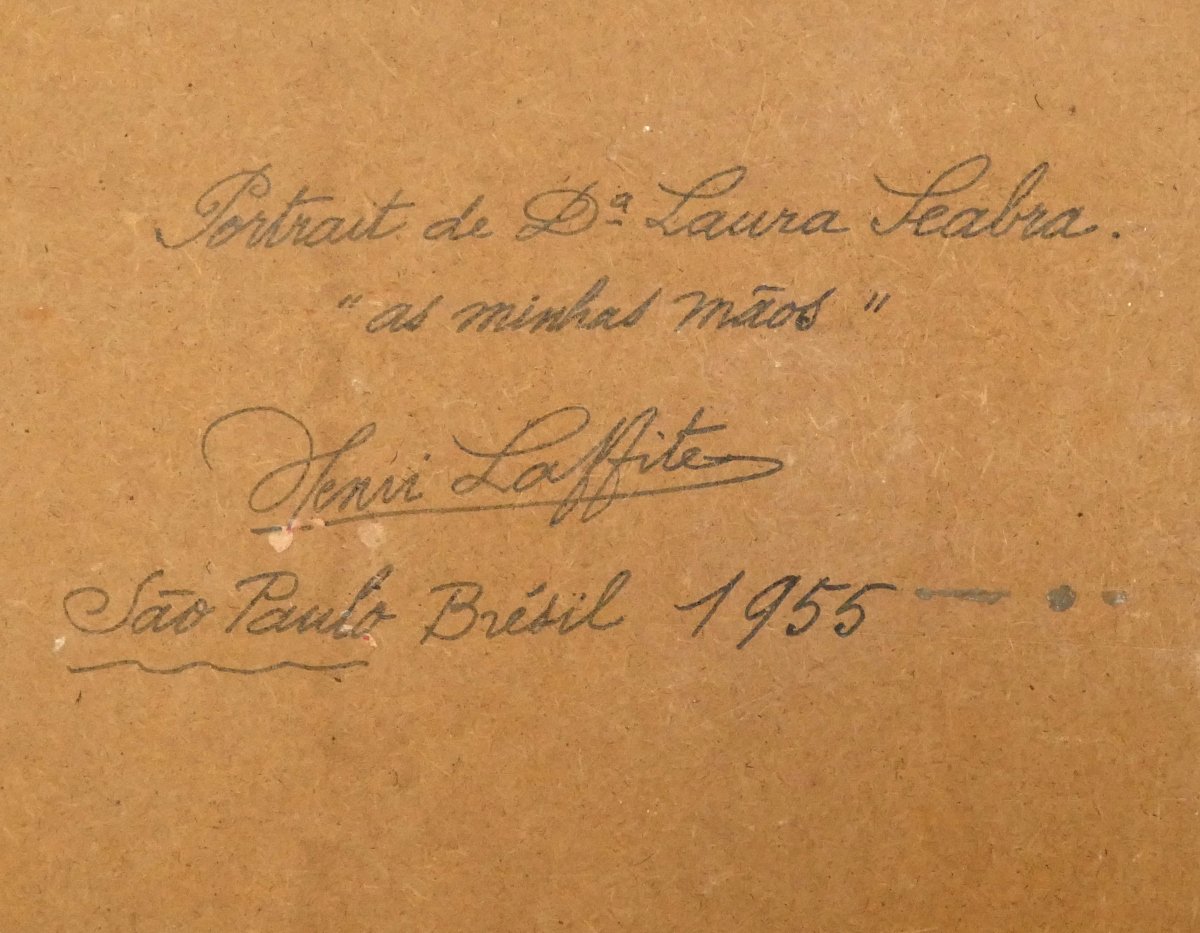 Portrait de Dª Laura Seabra.
"as minhas mãos"
Henri Laffite
São Paulo Brésil 1955